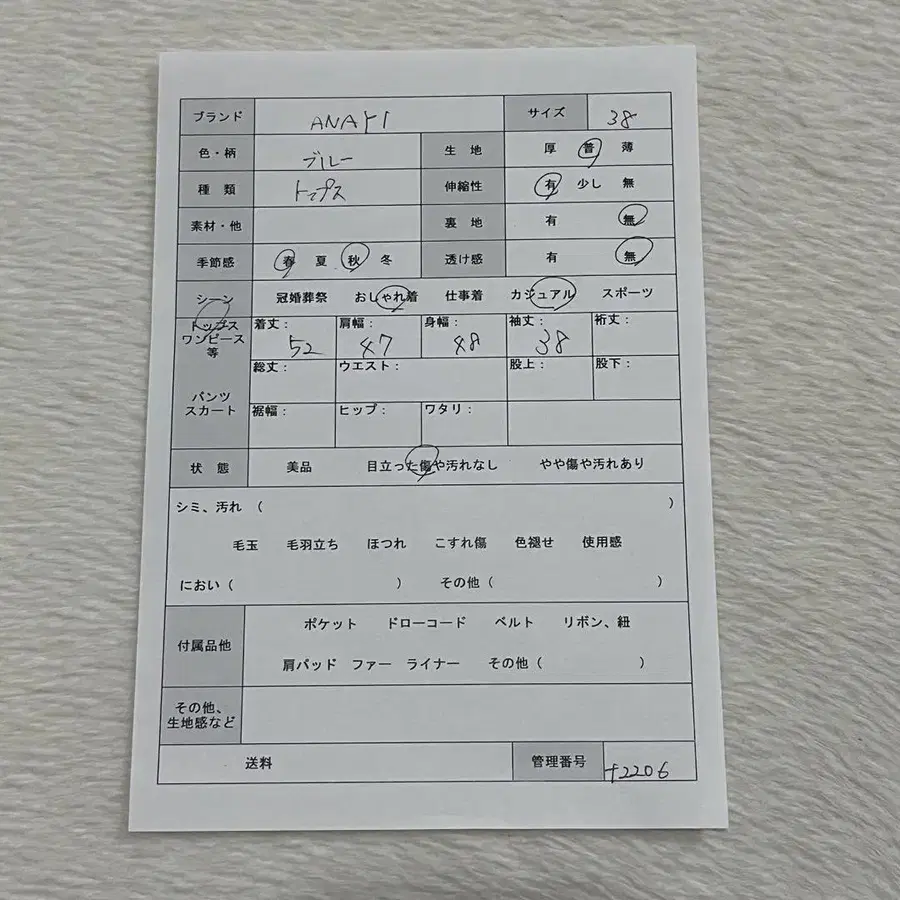 ブランド ANAYI サイズ 38
色・柄 ブルー 生 地 厚 普 薄
種 類 トップス 伸縮性 有 少し 無
素材・他 裏 地 有 無
季節感 春 夏 秋 冬 透け感 有 無
シーン 冠婚葬祭 おしゃれ着 仕事着 カジュアル スポーツ
トップス
ワンピース
等
着丈: 52 肩幅: 47 身幅: 48 袖丈: 38 裄丈:
総丈: ウエスト: 股上: 股下:
パンツ
スカート
裾幅: ヒップ: ワタリ:
状 態 美品 目立った傷や汚れなし やや傷や汚れあり
シミ、汚れ ( )
毛玉 毛羽立ち ほつれ こすれ傷 色褪せ 使用感
におい ( ) その他 ( )
付属品他 ポケット ドローコード ベルト リボン、紐
肩パッド ファー ライナー その他 ( )
その他、
生地感など
送料 管理番号 t2206